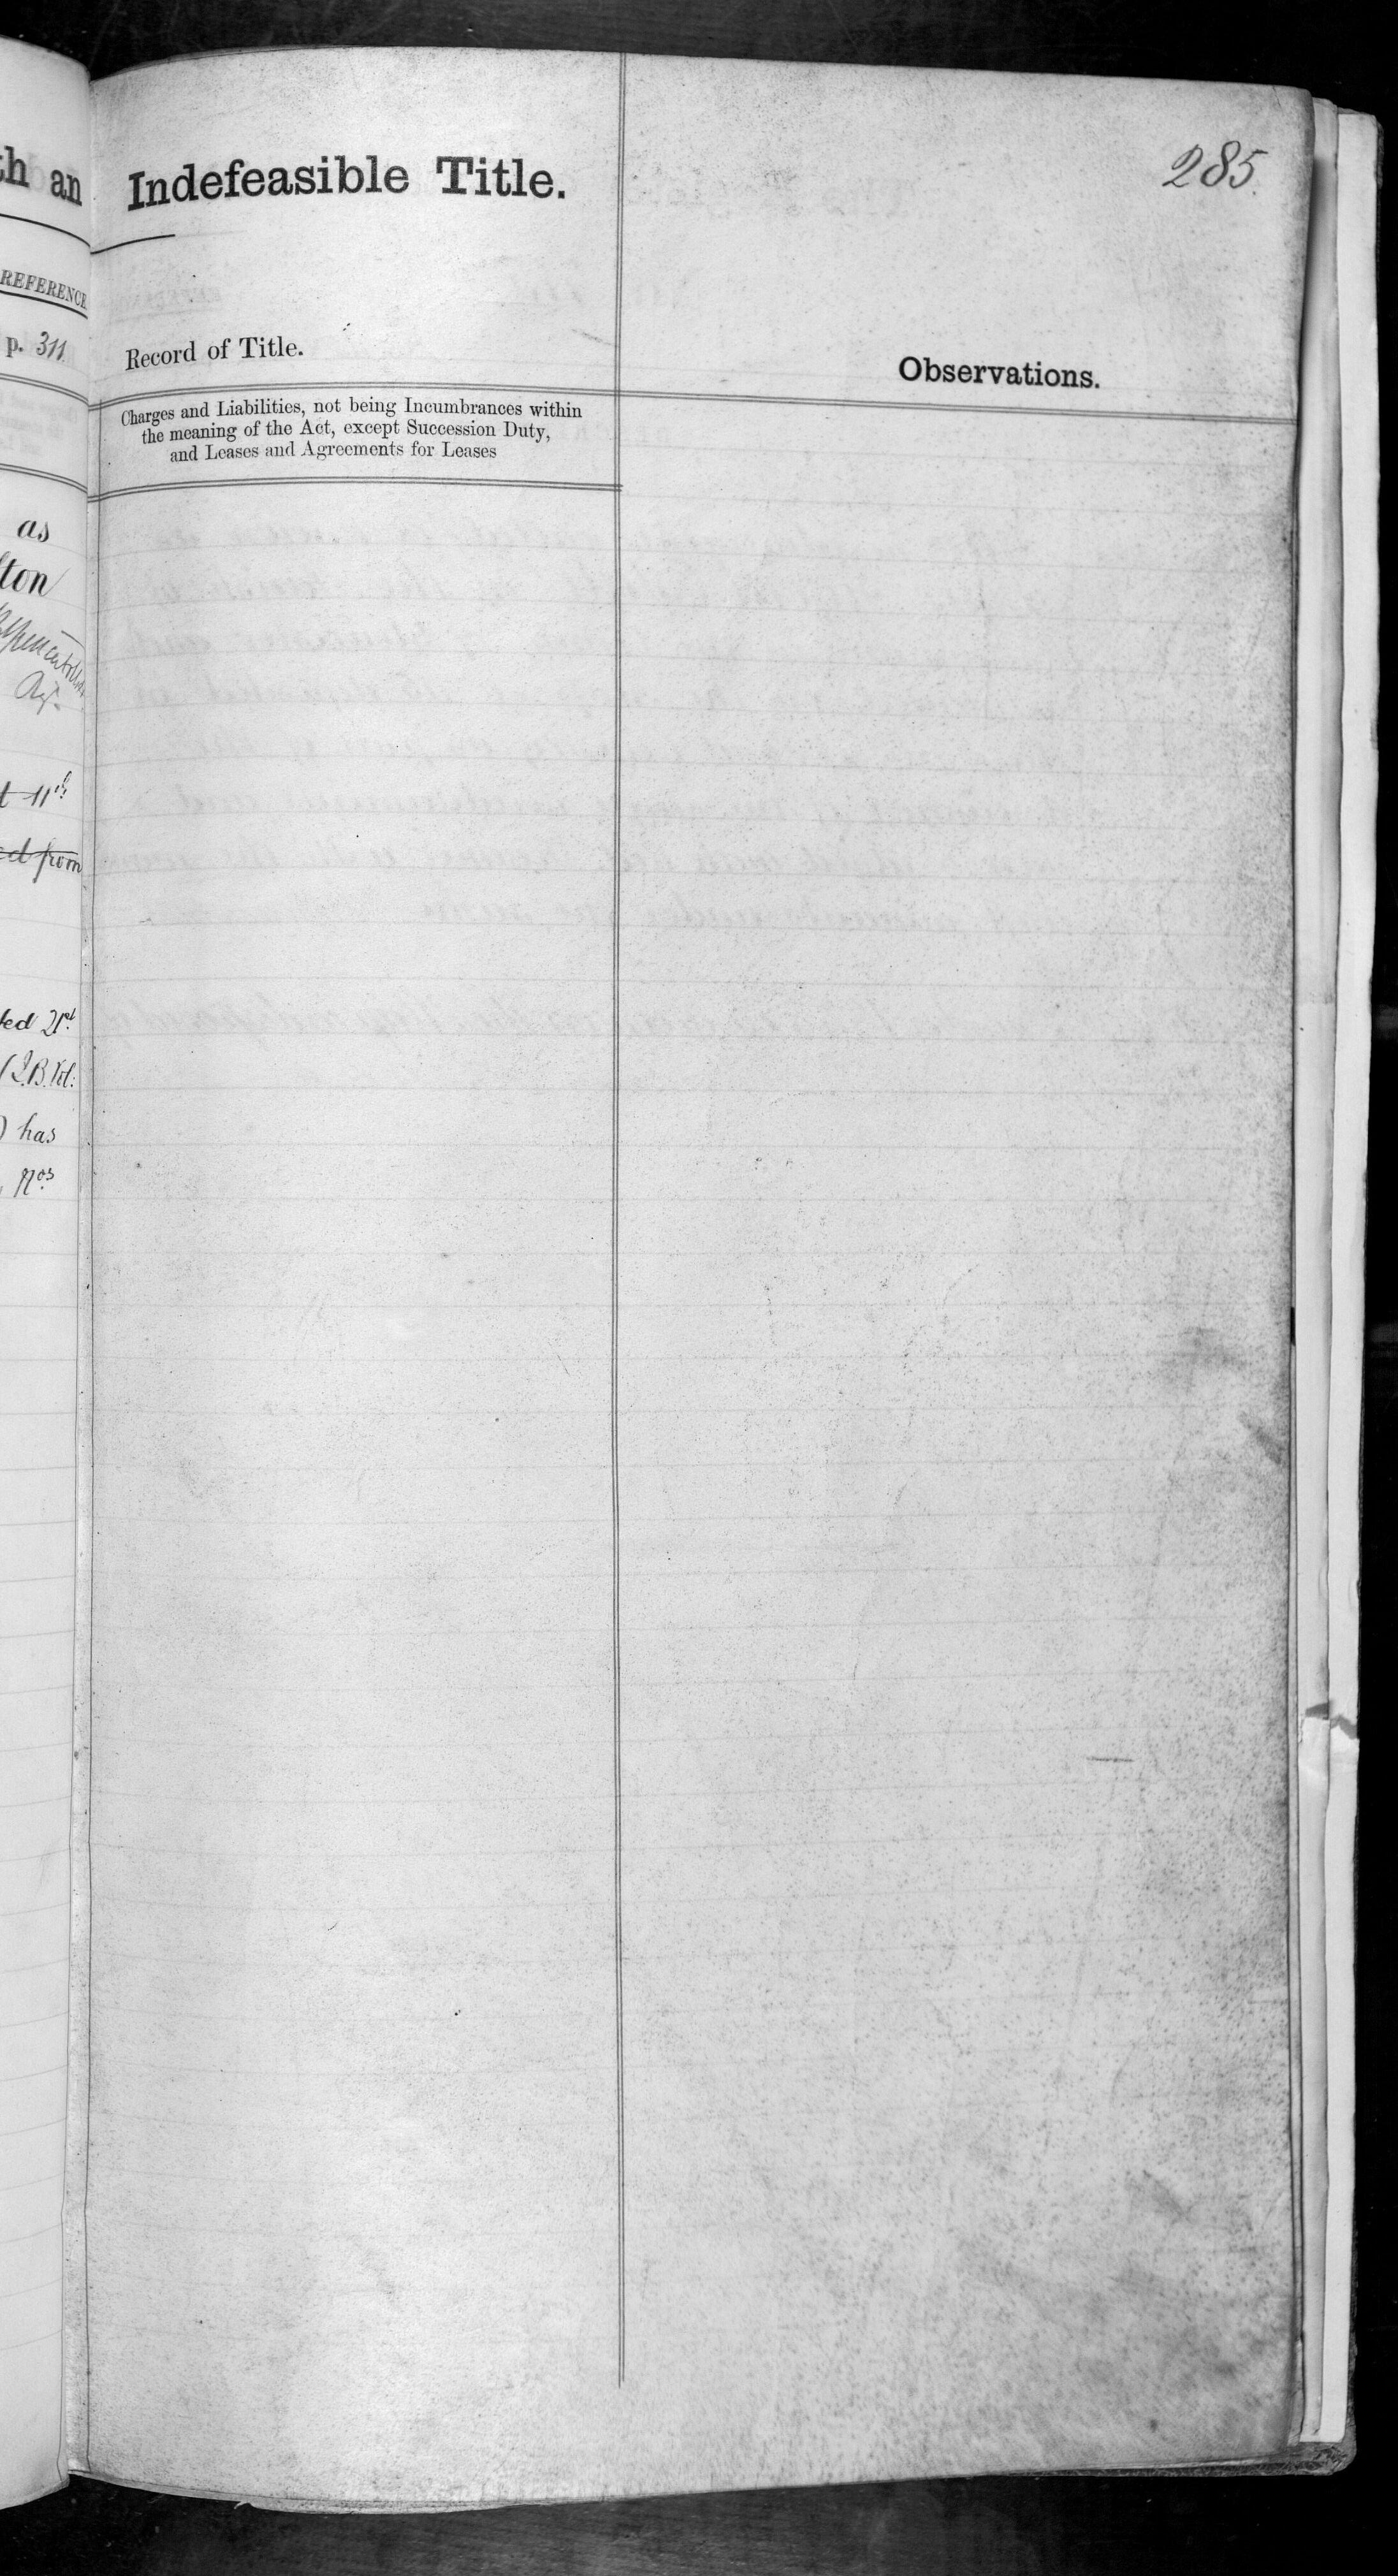 285.
th an
Indefeasible Title.
REFERENCE
p. 311
Record of Title.
Observations.
Charges and Liabilities, not being Incumbrances within
the meaning of the Act, except Succession Duty,
and Leases and Agreements for Leases
as
lton
t 11th
ed from
ted 21st
has
Nos